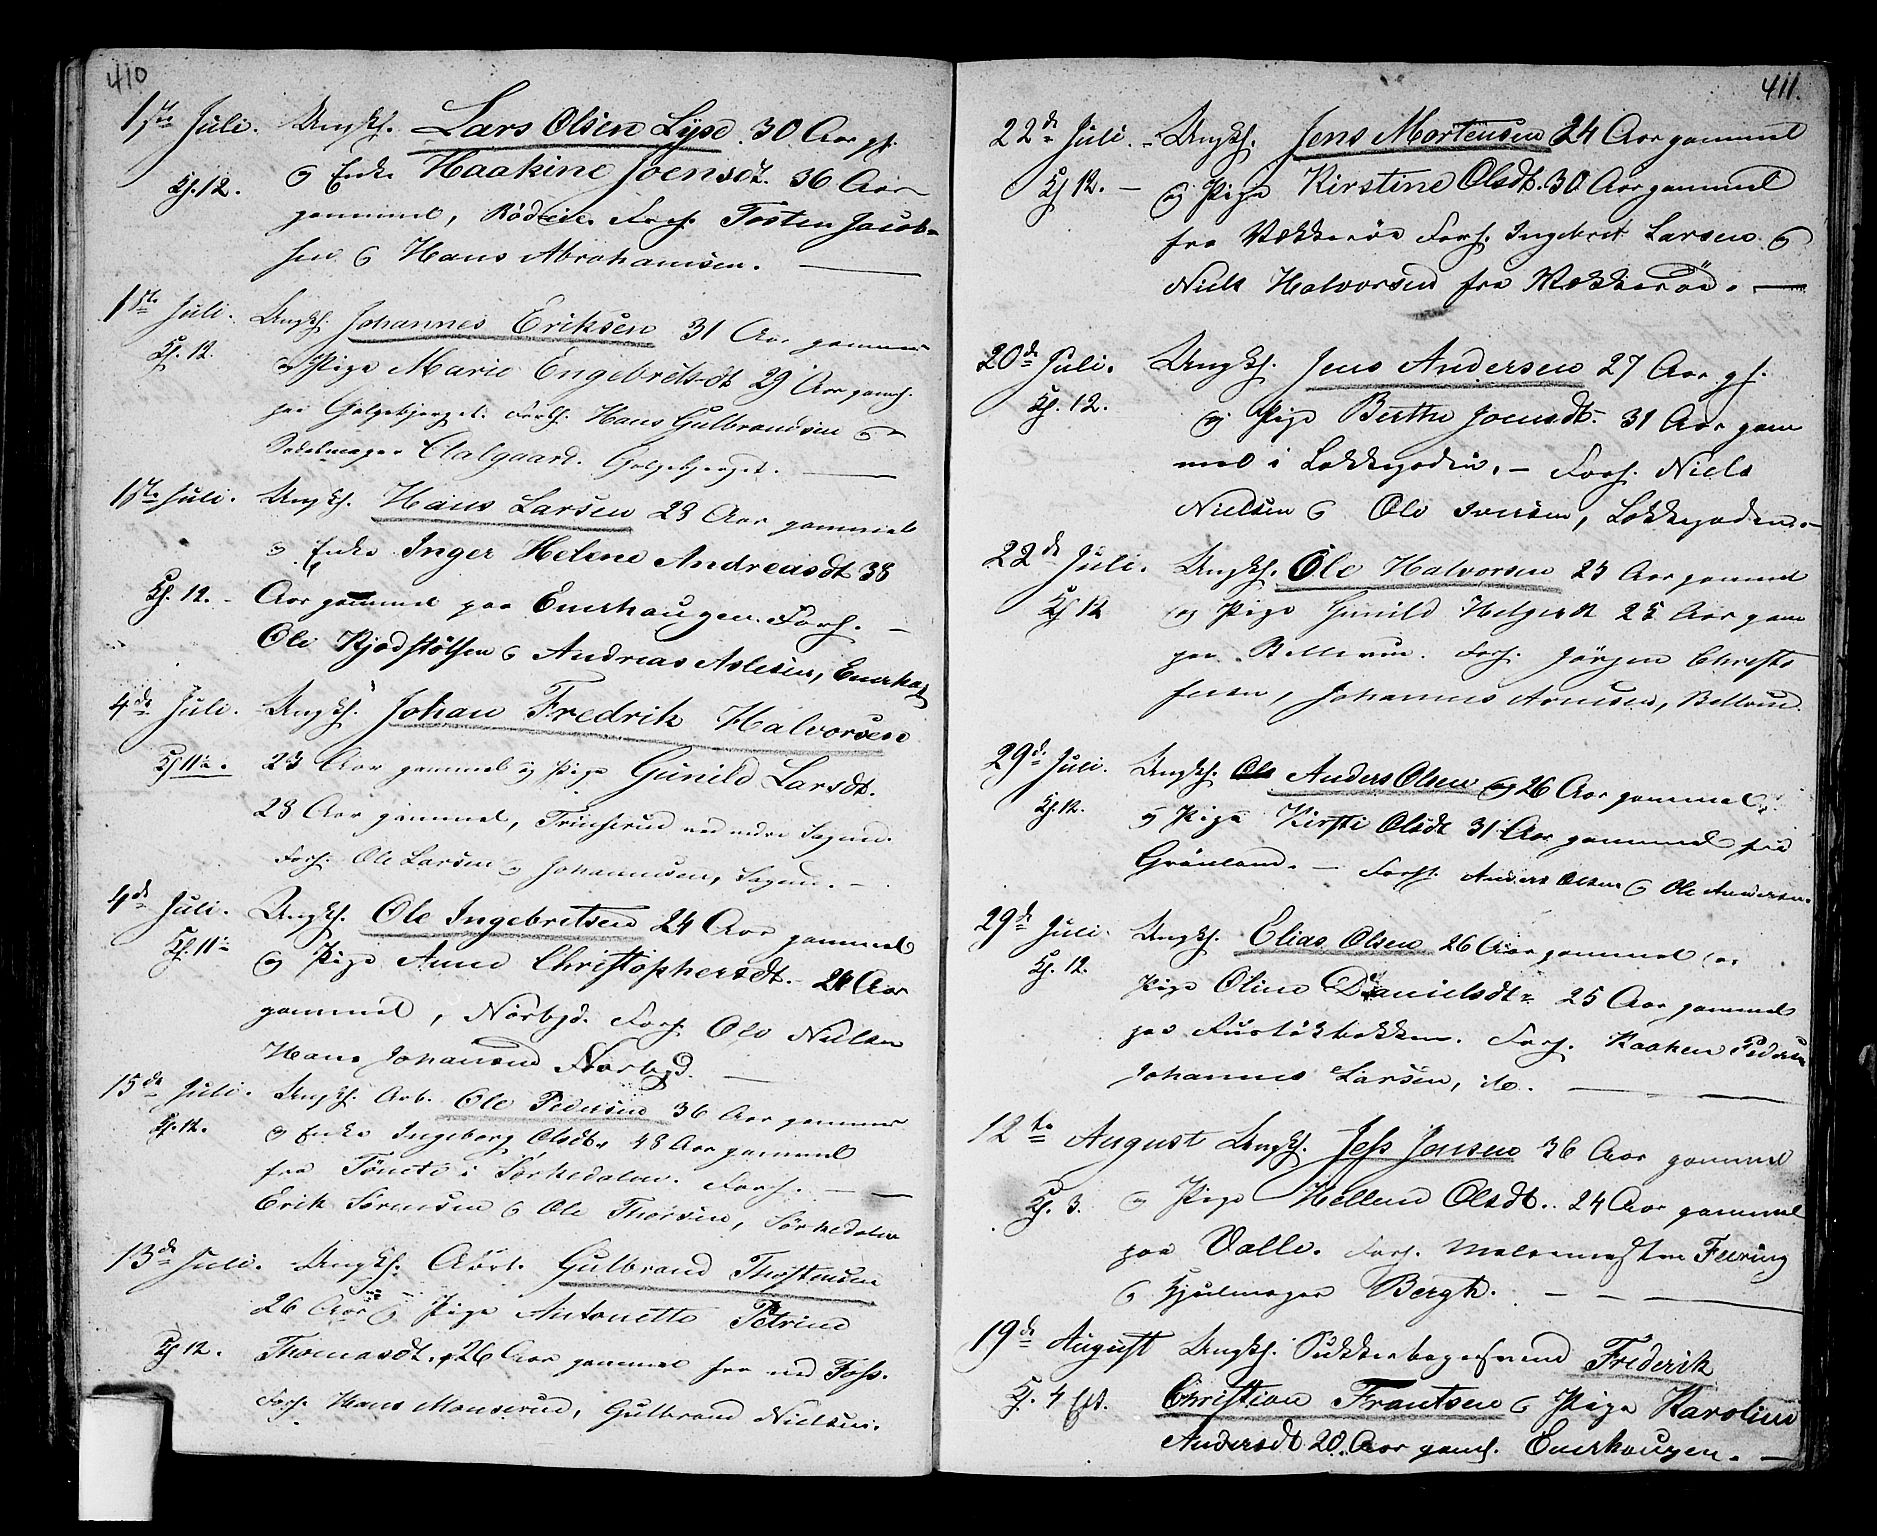 410
1ste Juli. Ungk. Lars Olsen Lyse 30 Aar gl.
Kl. 12. og Enke Haakine Joensdt. 36 Aar
gammel, Forl. Tosten Jacob-
sen & Hans Abrahamsen.
1ste Juli. Ungk. Johannes Eriksen 31 Aar gammel
Kl. 12. og Pige Marie Engebretsdt 29 Aar gaml.
paa Galgebjerget. Forl. Hans Gulbrandsen &
Aalgaard. Galgebjerget.
1ste Juli. Ungk. Hans Larsen 28 Aar gammel
og Enke Inger Helene Andreasdt 38
Kl. 12. Aar gammel paa Enerhaugen. Forl.
Ole Kjødstølsen & Andreas Aslesen, Enerhau
4de Juli. Ungk. Johan Fredrik Halvorsen
Kl 11½. 23 Aar gammel og Pige Gunild Larsdt.
28 Aar gammel, ved nedre
Forl. Ole Larsen & Johannesen,
4de Juli. Ungk. Ole Ingebretsen 24 Aar gammel
Kl. 11½ og Pige Anne Christophersdt. 24 Aar
gammel, Norbyd. Forl. Ole Nielsen
Hans Johansen Norbyd.
15de Juli. Ungk. Arb. Ole Pedersen 36 Aar gammel
Kl. 12. og Enke Ingeborg Olsdt 48 Aar gammel
fra i Sørkedalen. Forl.
Erik Sørensen & Ole Thorsen, Sørkedalen
13de Juli. Ungk. Arb. Gulbrand Thostensen
26 Aar og Pige Antonette Petrine
Kl 12. Thomasdt. 26 Aar gammel fra ved Foss.
Forl. Hans Monserud, Gulbrand Nielsen.
411.
22de Juli. Ungk. Jens Mortensen 24 Aar gammel
Kl 12. og Pige Kirstine Olsdt. 30 Aar gammel
fra Vækkerøe Forl. Ingebret Larsen &
Niels Halvorsen fra Vækkerøe.
20de Juli. Ungk. Jens Andersen 27 Aar gl.
Kl. 12. og Pige Berthe Joensdt. 31 Aar gam
mel i Løkkegaden. Forl. Niels
Nielsen & Ole Iversen, Løkkegaden.
22de Juli. Ungk. Ole Halvorsen 25 Aar gammel
Kl 12 og Pige Gunild Helgesdt 25 Aar gam
paa Forl. Jørgen Christo
fersen, Johannes Arnesen,
29de Juli. Ungk. Anders Olsen 26 Aar gammel
Kl. 12. og Pige Kirsti Olsdt 31 Aar gammel fra
Grønland. Forl. Anders Olsen & Ole Andersen.
29de Juli. Ungk. Elias Olsen 26 Aar gammel og
Kl. 12. Pige Oline Danielsdtr 25 Aar gammel
paa Forl. Haaken Pedersen
Johannes Larsen, ib.
12te August Ungk. Jess Jensen 36 Aar gammel
Kl. 3. og Pige Hellene Olsdt. 24 Aar gammel
paa Valle. Forl. Malermester Feering
& Hjulmager Bergh.
19de August Ungk. Frederik
Kl. 4 Eft. Christian Frantsen & Pige Karoline
Andersdt 20 Aar gaml. Enerhaugen.